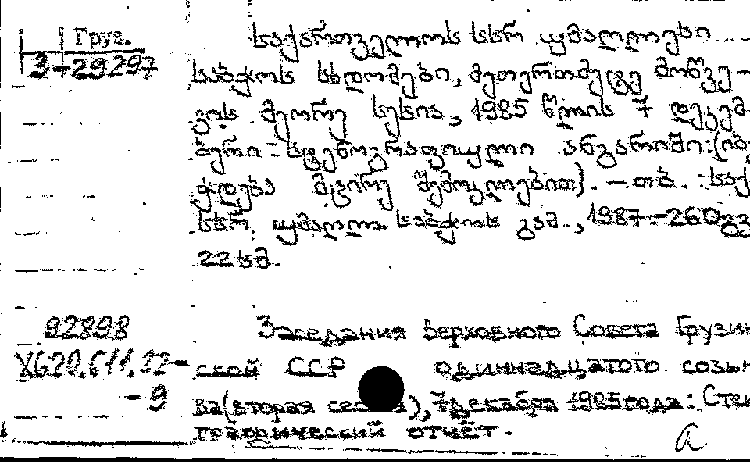 Груз.
3-29297
საქართველოს სსრ უმაღლესი
საბჭოს სხდომები, მეთერთმეტე მოწვე-
ვის მეორე სესია, 1985 წლის 7 დეკემ
ბერი: სტენოგრაფიული ანგარიში:(იბ
ჭდება მცირე შემოკლებით). — თბ. : საქ
სსრ უმაღლ. საბჭოს გამ., 1987.-260გვ
22სმ.
92898
Х620.611.22-
-9
Заседания Верховного Совета Грузин
ской ССР одиннадцатого созы
ва(вторая се), 7декабря 1985года: Стен
графический отчёт.